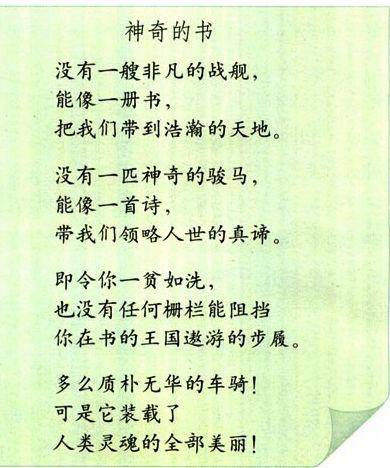 神奇的书
没有一艘非凡的战舰，
能像一册书，
把我们带到浩瀚的天地。
没有一匹神奇的骏马，
能像一首诗，
带我们领略人世的真谛。
即令你一贫如洗，
也没有任何栅栏能阻挡
你在书的王国遨游的步履。
多么质朴无华的车骑！
可是它装载了
人类灵魂的全部美丽！